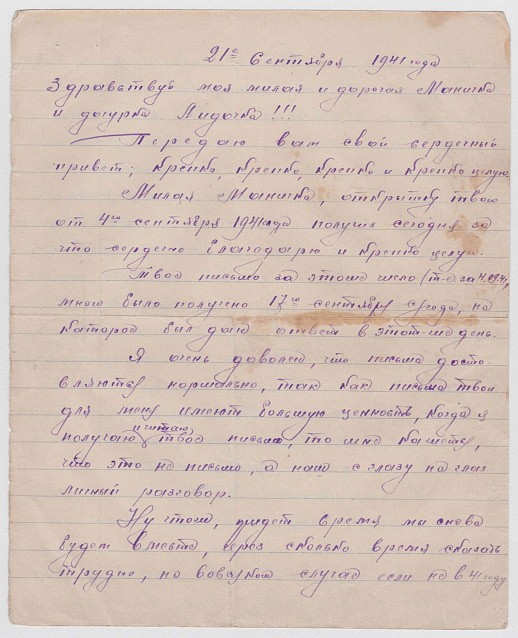 21ᵉ Сентября 1941 года
Здравствуй моя милая и дорогая Маничка
и доçурка Лидочка!!!
Передаю вам свой сердечный
привет; крепко, крепко, крепко и крепко целую.
Милая Маничка, открытку твою
от 4го сентября 1941 года получил сегодня за
что сердечно благодарю и крепко целую.
Твое письмо за этоже число (т-е за 4.09.41)
мною было получено 17го сентября с/года, на
которое был дан ответ в этот-же день.
Я очень доволен, что письма доста-
вляются нормально, так как письма твои
для меня имеют большую ценность, когда я
получаю и читаю твое письмо, то мне кажется,
что это не письмо, а наш с глазу на глаз
личный разговор.
Ну чтож, придет время мы снова
будем вместе, через сколько время сказать
трудно, но во всяком случае если не в 41 году